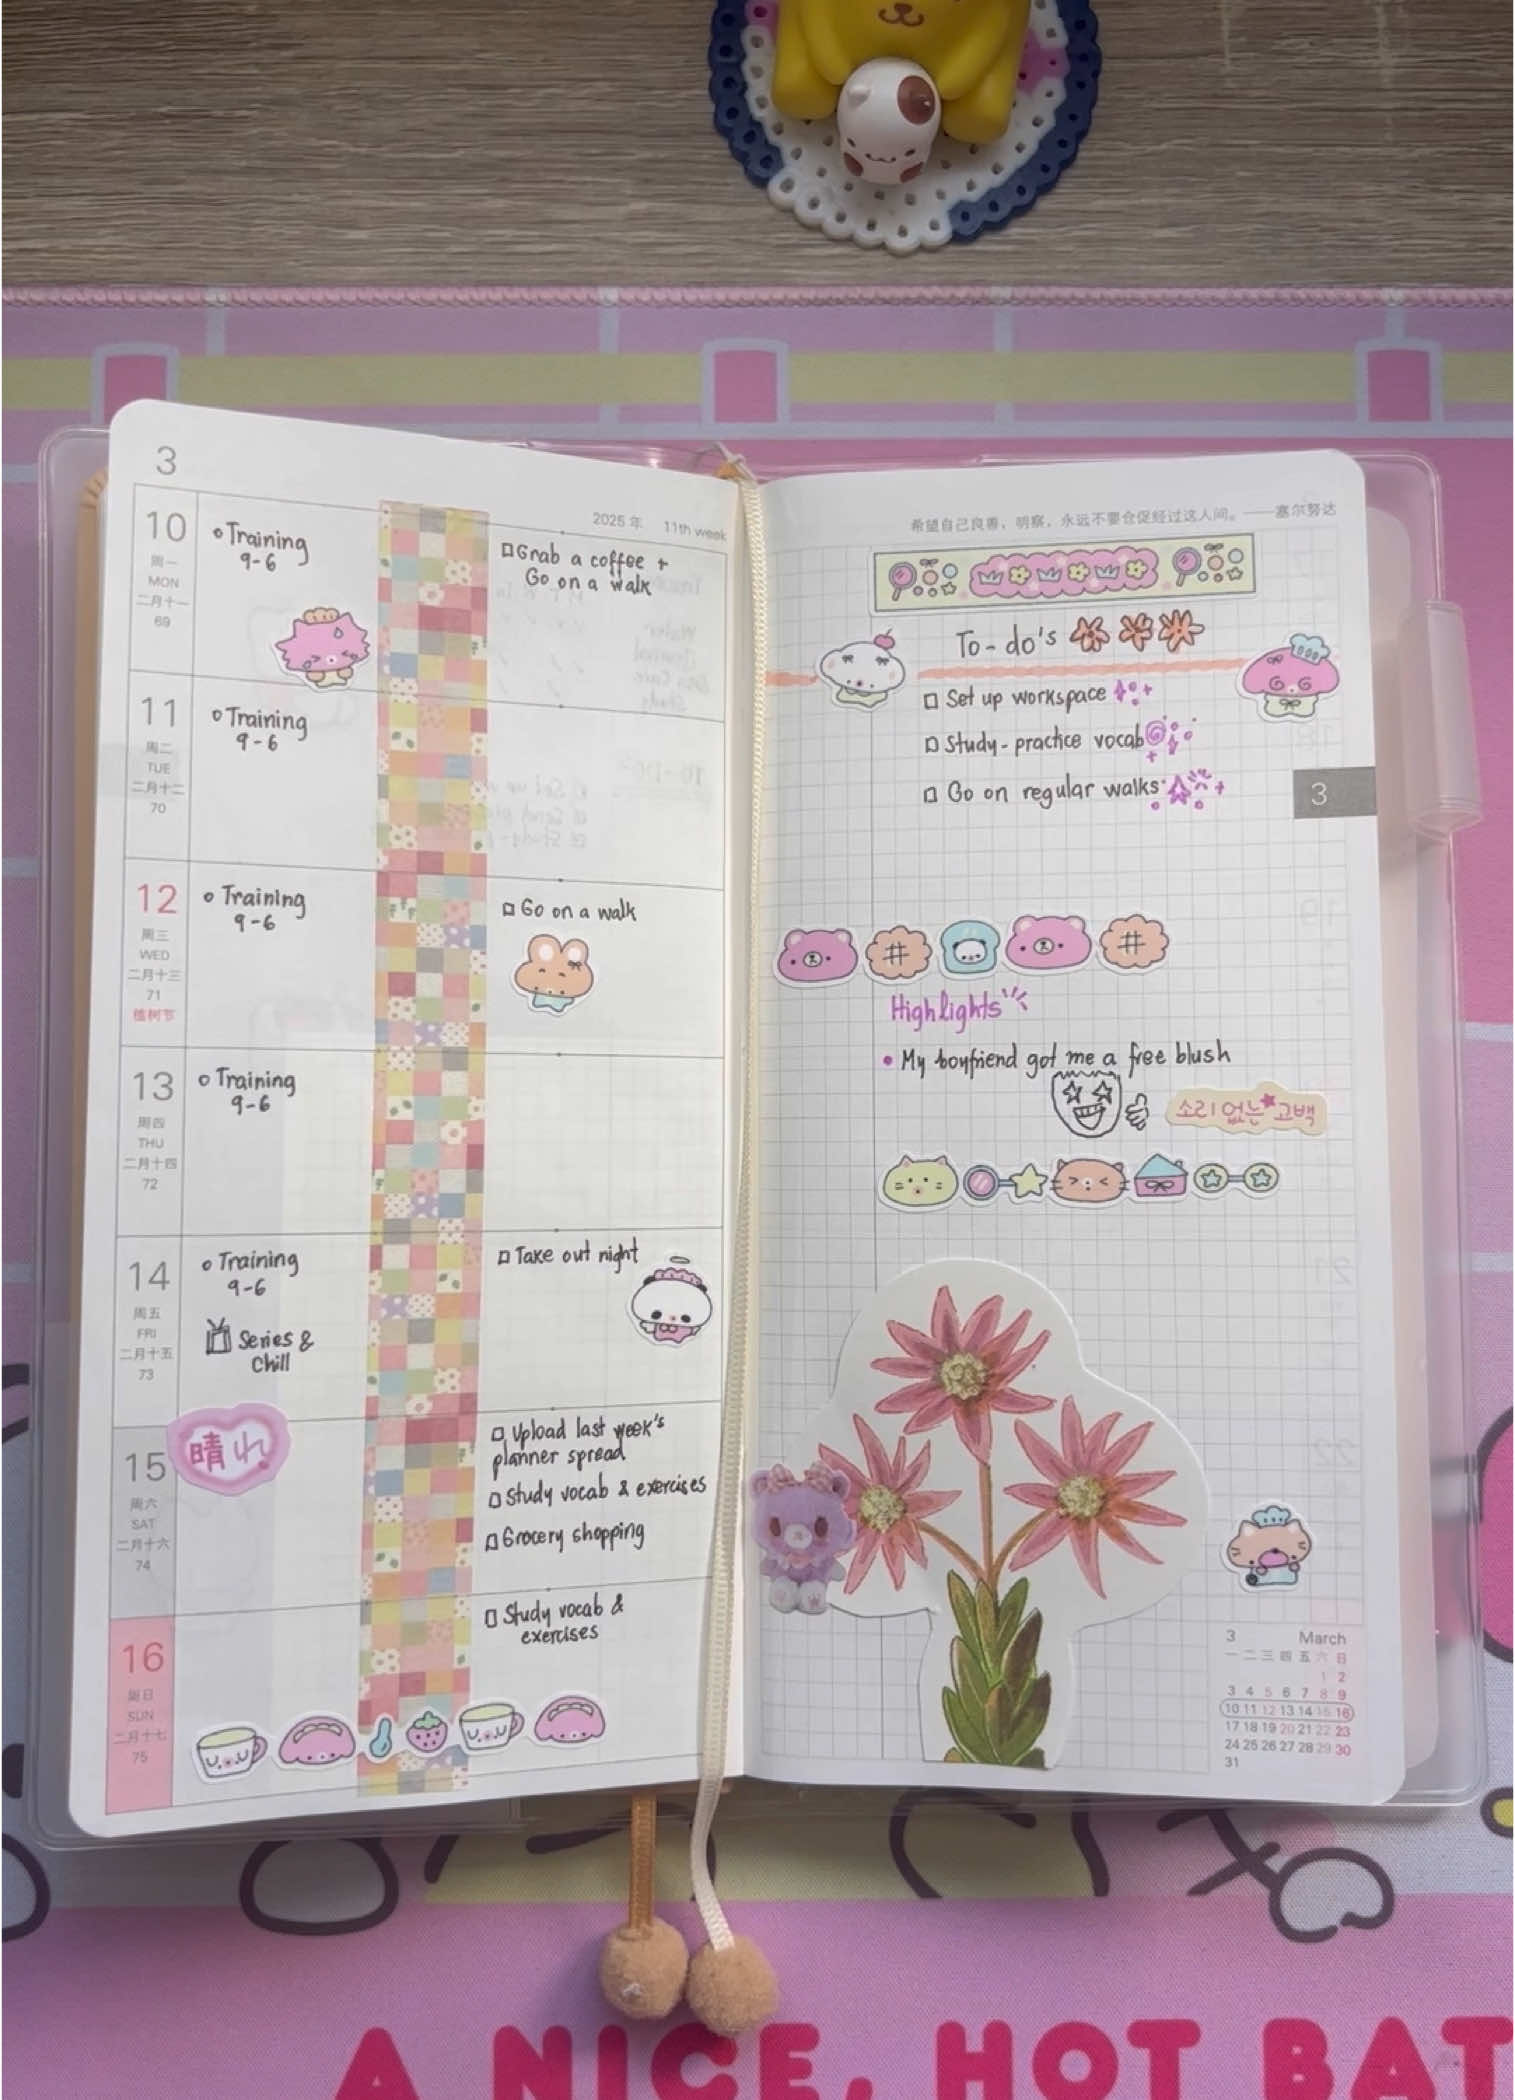 3
2025 年 11th week
10
周一
MON
二月十一
69
Training
9-6
Grab a coffee +
Go on a walk
11
周二
TUE
二月十二
70
Training
9-6
12
周三
WED
二月十三
71
植树节
Training
9-6
Go on a walk
13
周四
THU
二月十四
72
Training
9-6
14
周五
FRI
二月十五
73
Training
9-6
Series &
Chill
Take out night
15
周六
SAT
二月十六
74
晴れ
Upload last week's
planner spread
Study vocab & exercises
Grocery shopping
16
周日
SUN
二月十七
75
Study vocab &
exercises
希望自己良善，明察，永远不要仓促经过这人间。——塞尔努达
To-do's
Set up workspace
Study-practice vocab
Go on regular walks
3
Highlights
• My boyfriend got me a free blush
소리 없는 고백
3 March
一 二 三 四 五 六 日
1 2
3 4 5 6 7 8 9
10 11 12 13 14 15 16
17 18 19 20 21 22 23
24 25 26 27 28 29 30
31
A NICE, HOT BAT